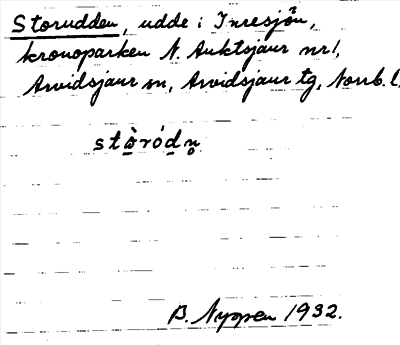 Storudden, udde i Inresjön,
kronoparken N. Auktsjaur nr 1,
Arvidsjaur sn, Arvidsjaur tg, Norrb. l.
stòródn̥
B. Nyppen 1932.